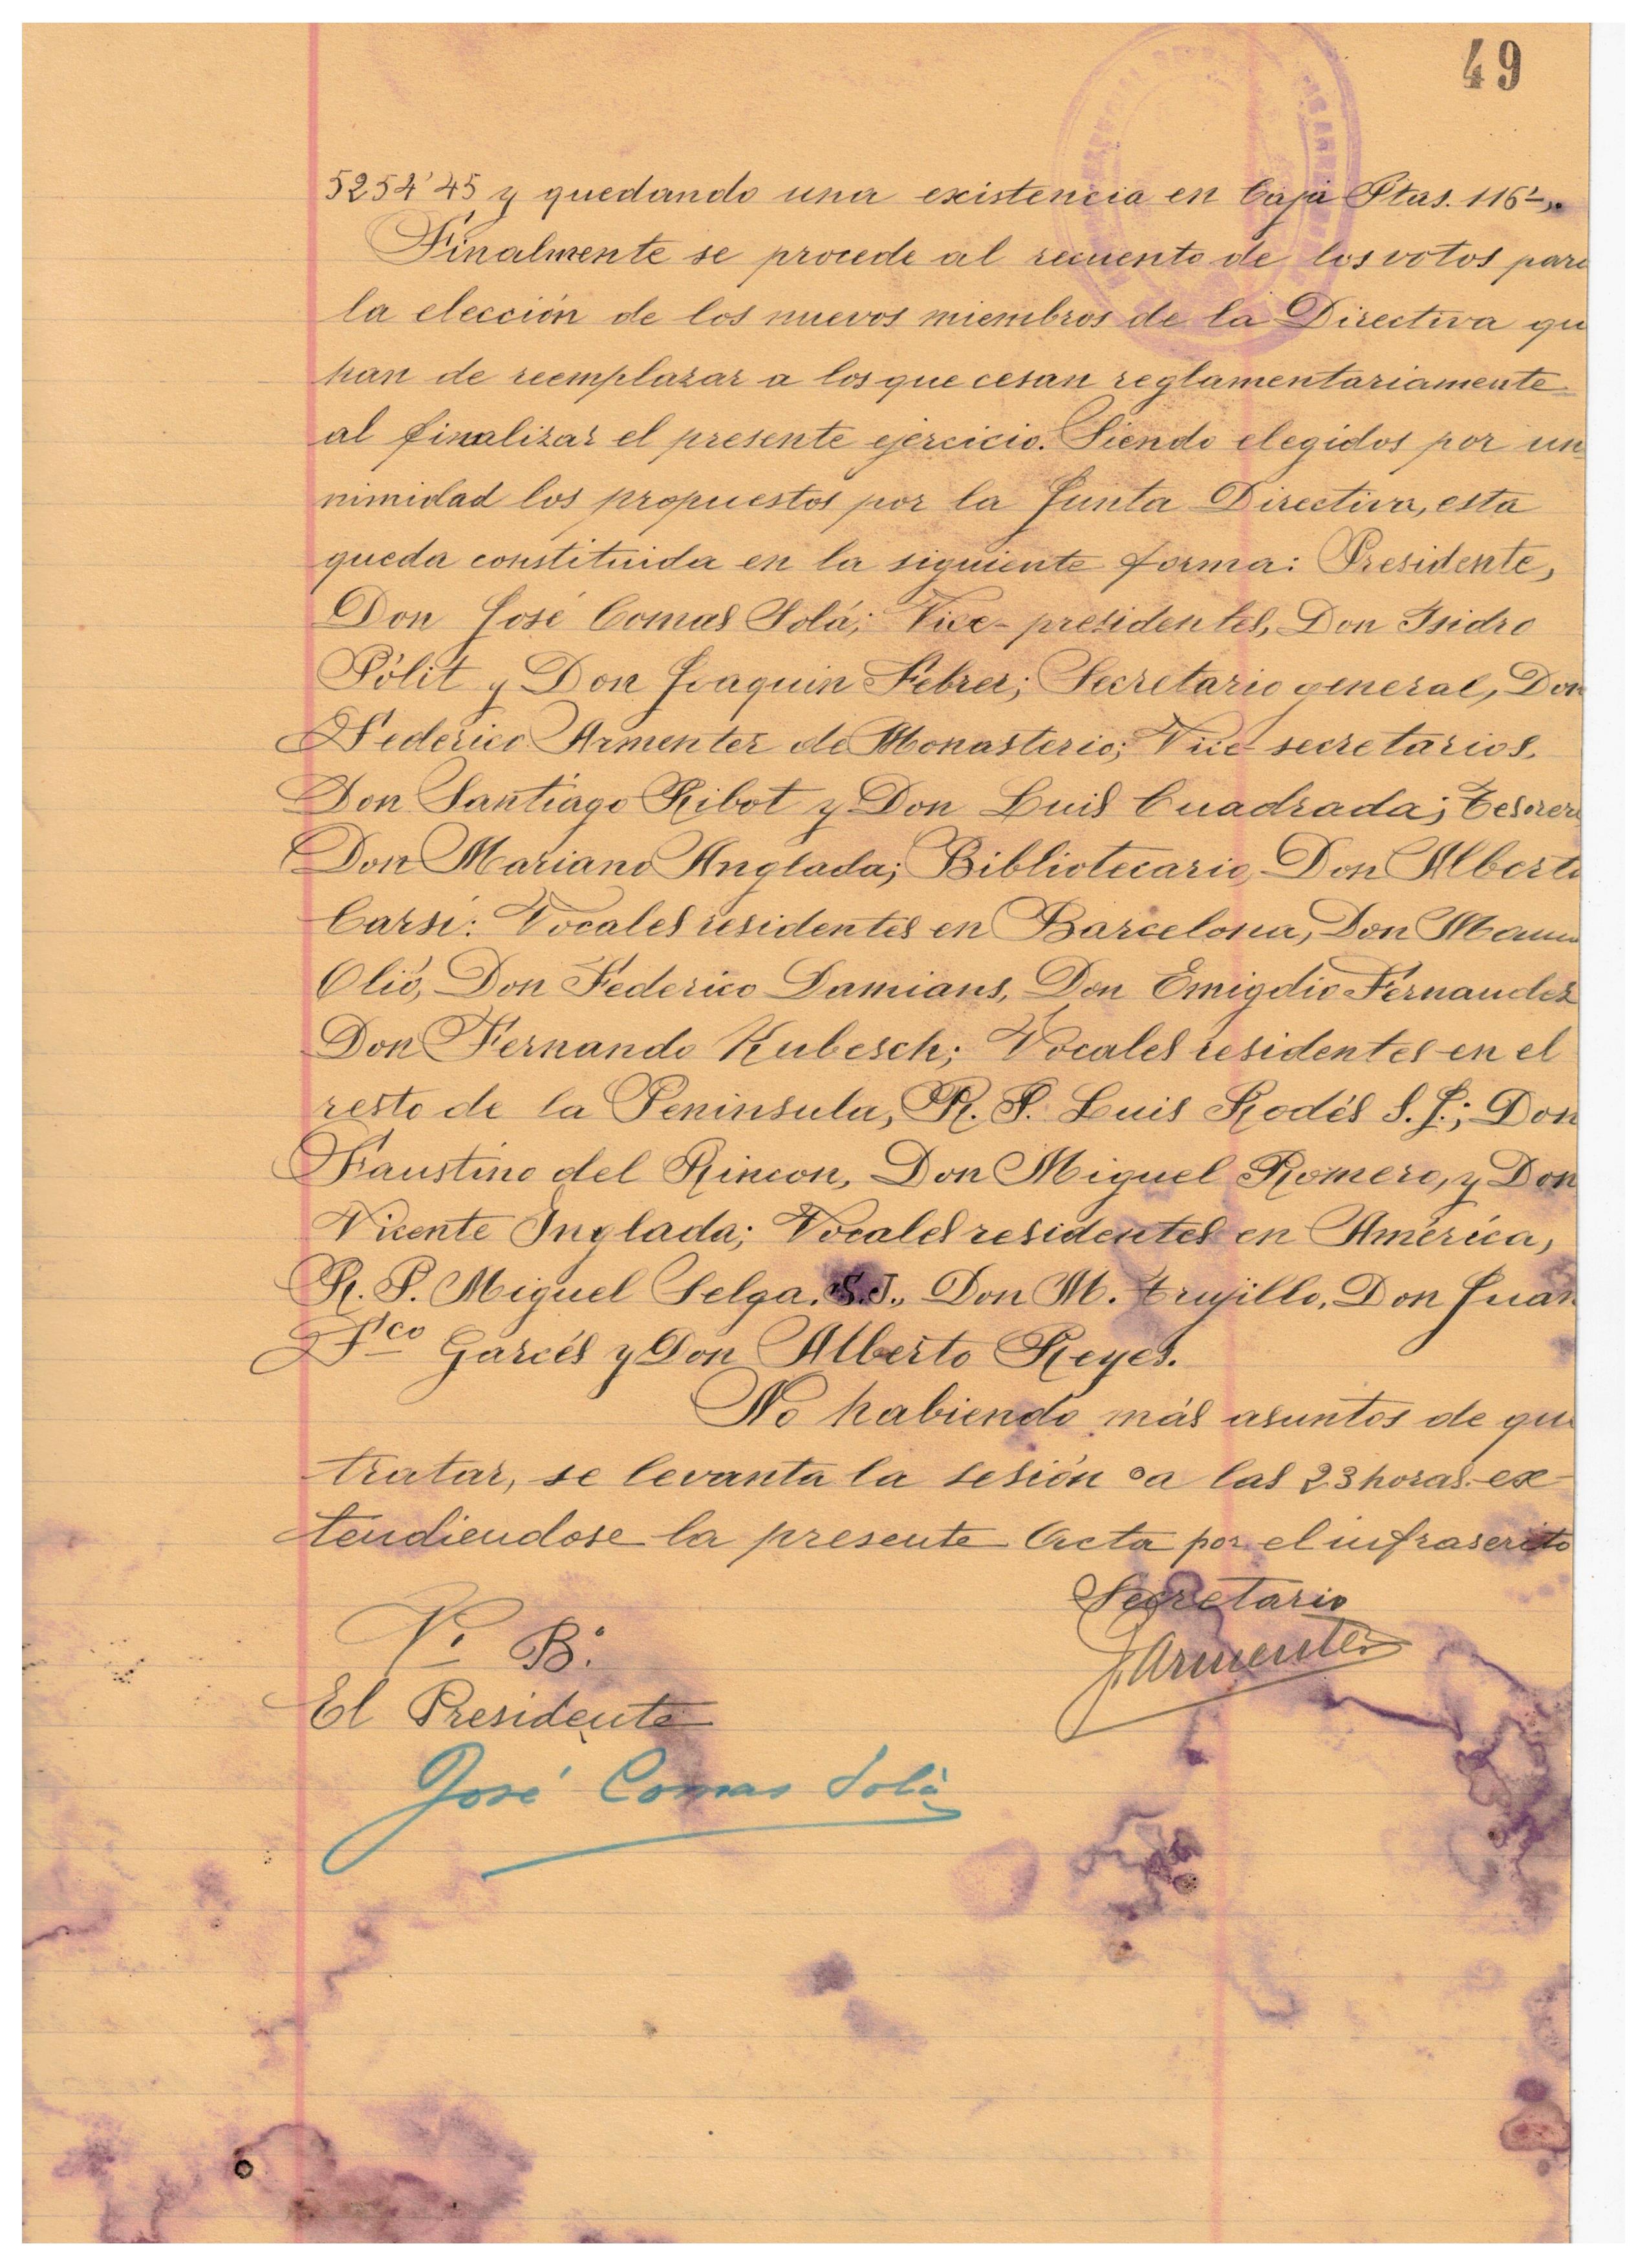 49
5254'45 y quedando una existencia en Caja Ptas. 116'-,,.
Finalmente se procede al recuento de los votos para
la elección de los nuevos miembros de la Directiva qu
han de reemplazar a los que cesan reglamentariamente
al finalizar el presente ejercicio. Siendo elegidos por un
nimidad los propuestos por la Junta Directiva, esta
queda constituida en la siguiente forma: Presidente,
Don José Comas Solá; Vice-presidentes, Don Isidro
Pólit y Don Joaquin Febrer; Secretario general, Don
Federico Armenter de Monasterio; Vice-secretarios.
Don Santiago Ribot y Don Luis Cuadrada; Tesorer
Don Mariano Anglada; Bibliotecario, Don Alberto
Carsí: Vocales residentes en Barcelona, Don
Olió, Don Federico Damians, Don Emigdio Fernandez
Don Fernando Kubesch; Vocales residentes en el
resto de la Peninsula, R. P. Luis Rodés S. J.; Don
Faustino del Rincon, Don Miguel Romero, y Don
Vicente Inglada; Vocales residentes en América,
R. P. Miguel Selga. S.J., Don M. Trujillo, Don Juan
Fco Garcés y Don Alberto Reyes.
No habiendo más asuntos de qu
tratar, se levanta la sesión a las 23 horas. ex-
tendiendose la presente Acta por el infrascrito
Secretario
V. B.
F. Armenter
El Presidente
José Comas Solà